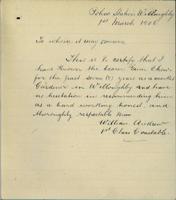 Police Station Willoughby
1st March 1906
To whom it may concern
This is to certify that I
have known the bearer
for the past seven (7) years as a market
Gardener in Willoughby and have
no hesitation in recommending him
as a hard working honest, and
thoroughly respectable man
William
1st Class Constable.